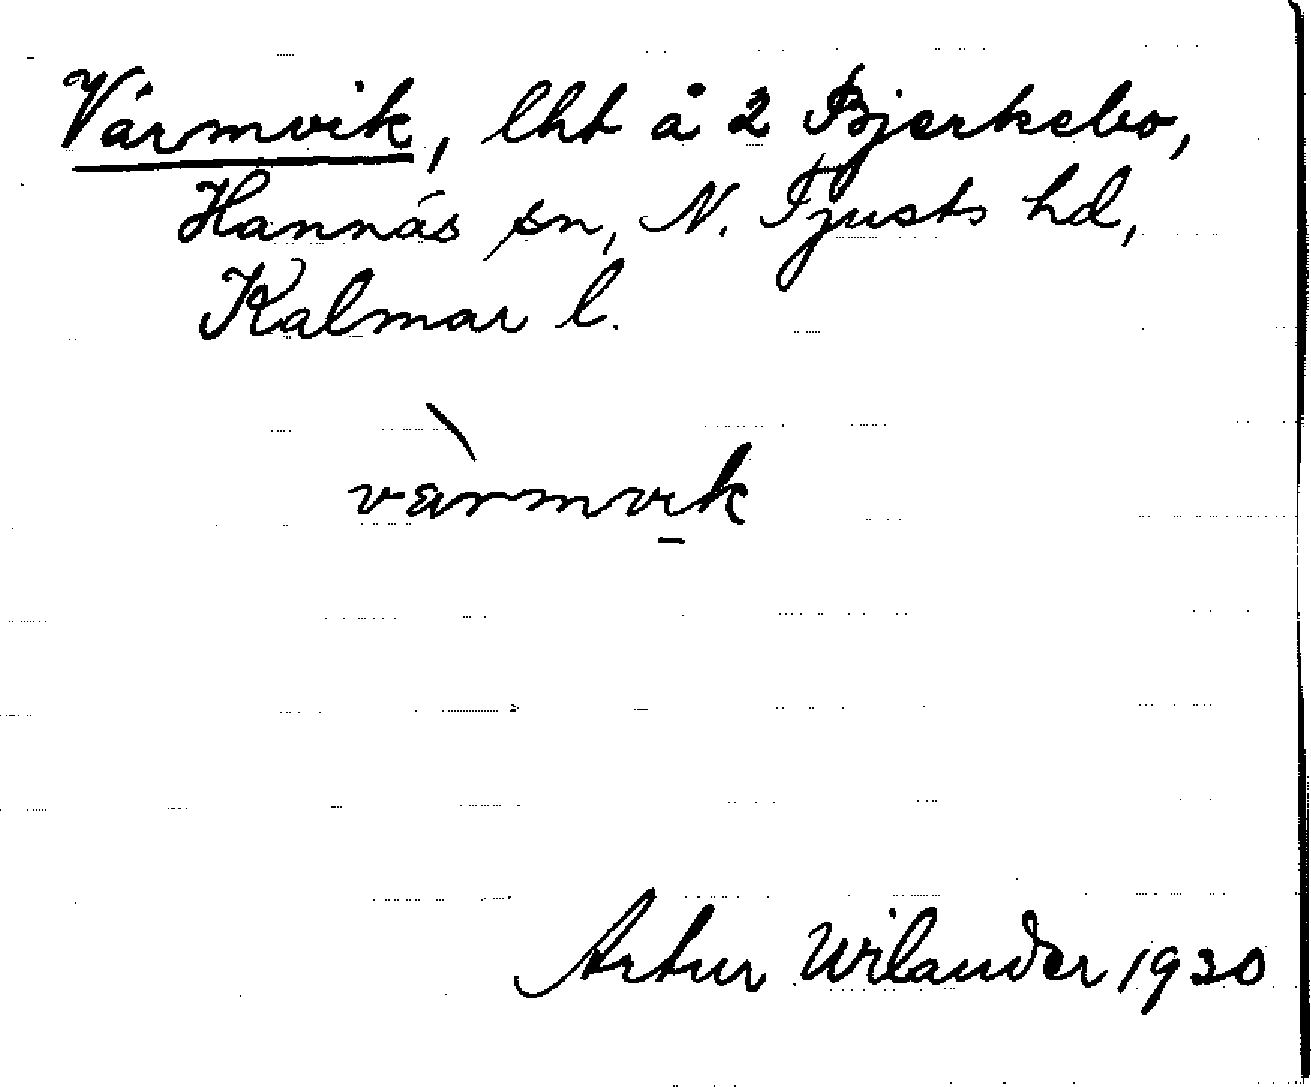 Värmvik, lht å 2 Bjerkebo,
Hannäs sn, N. Tjusts hd,
Kalmar l.
vàrmvik
Artur Wilander 1930